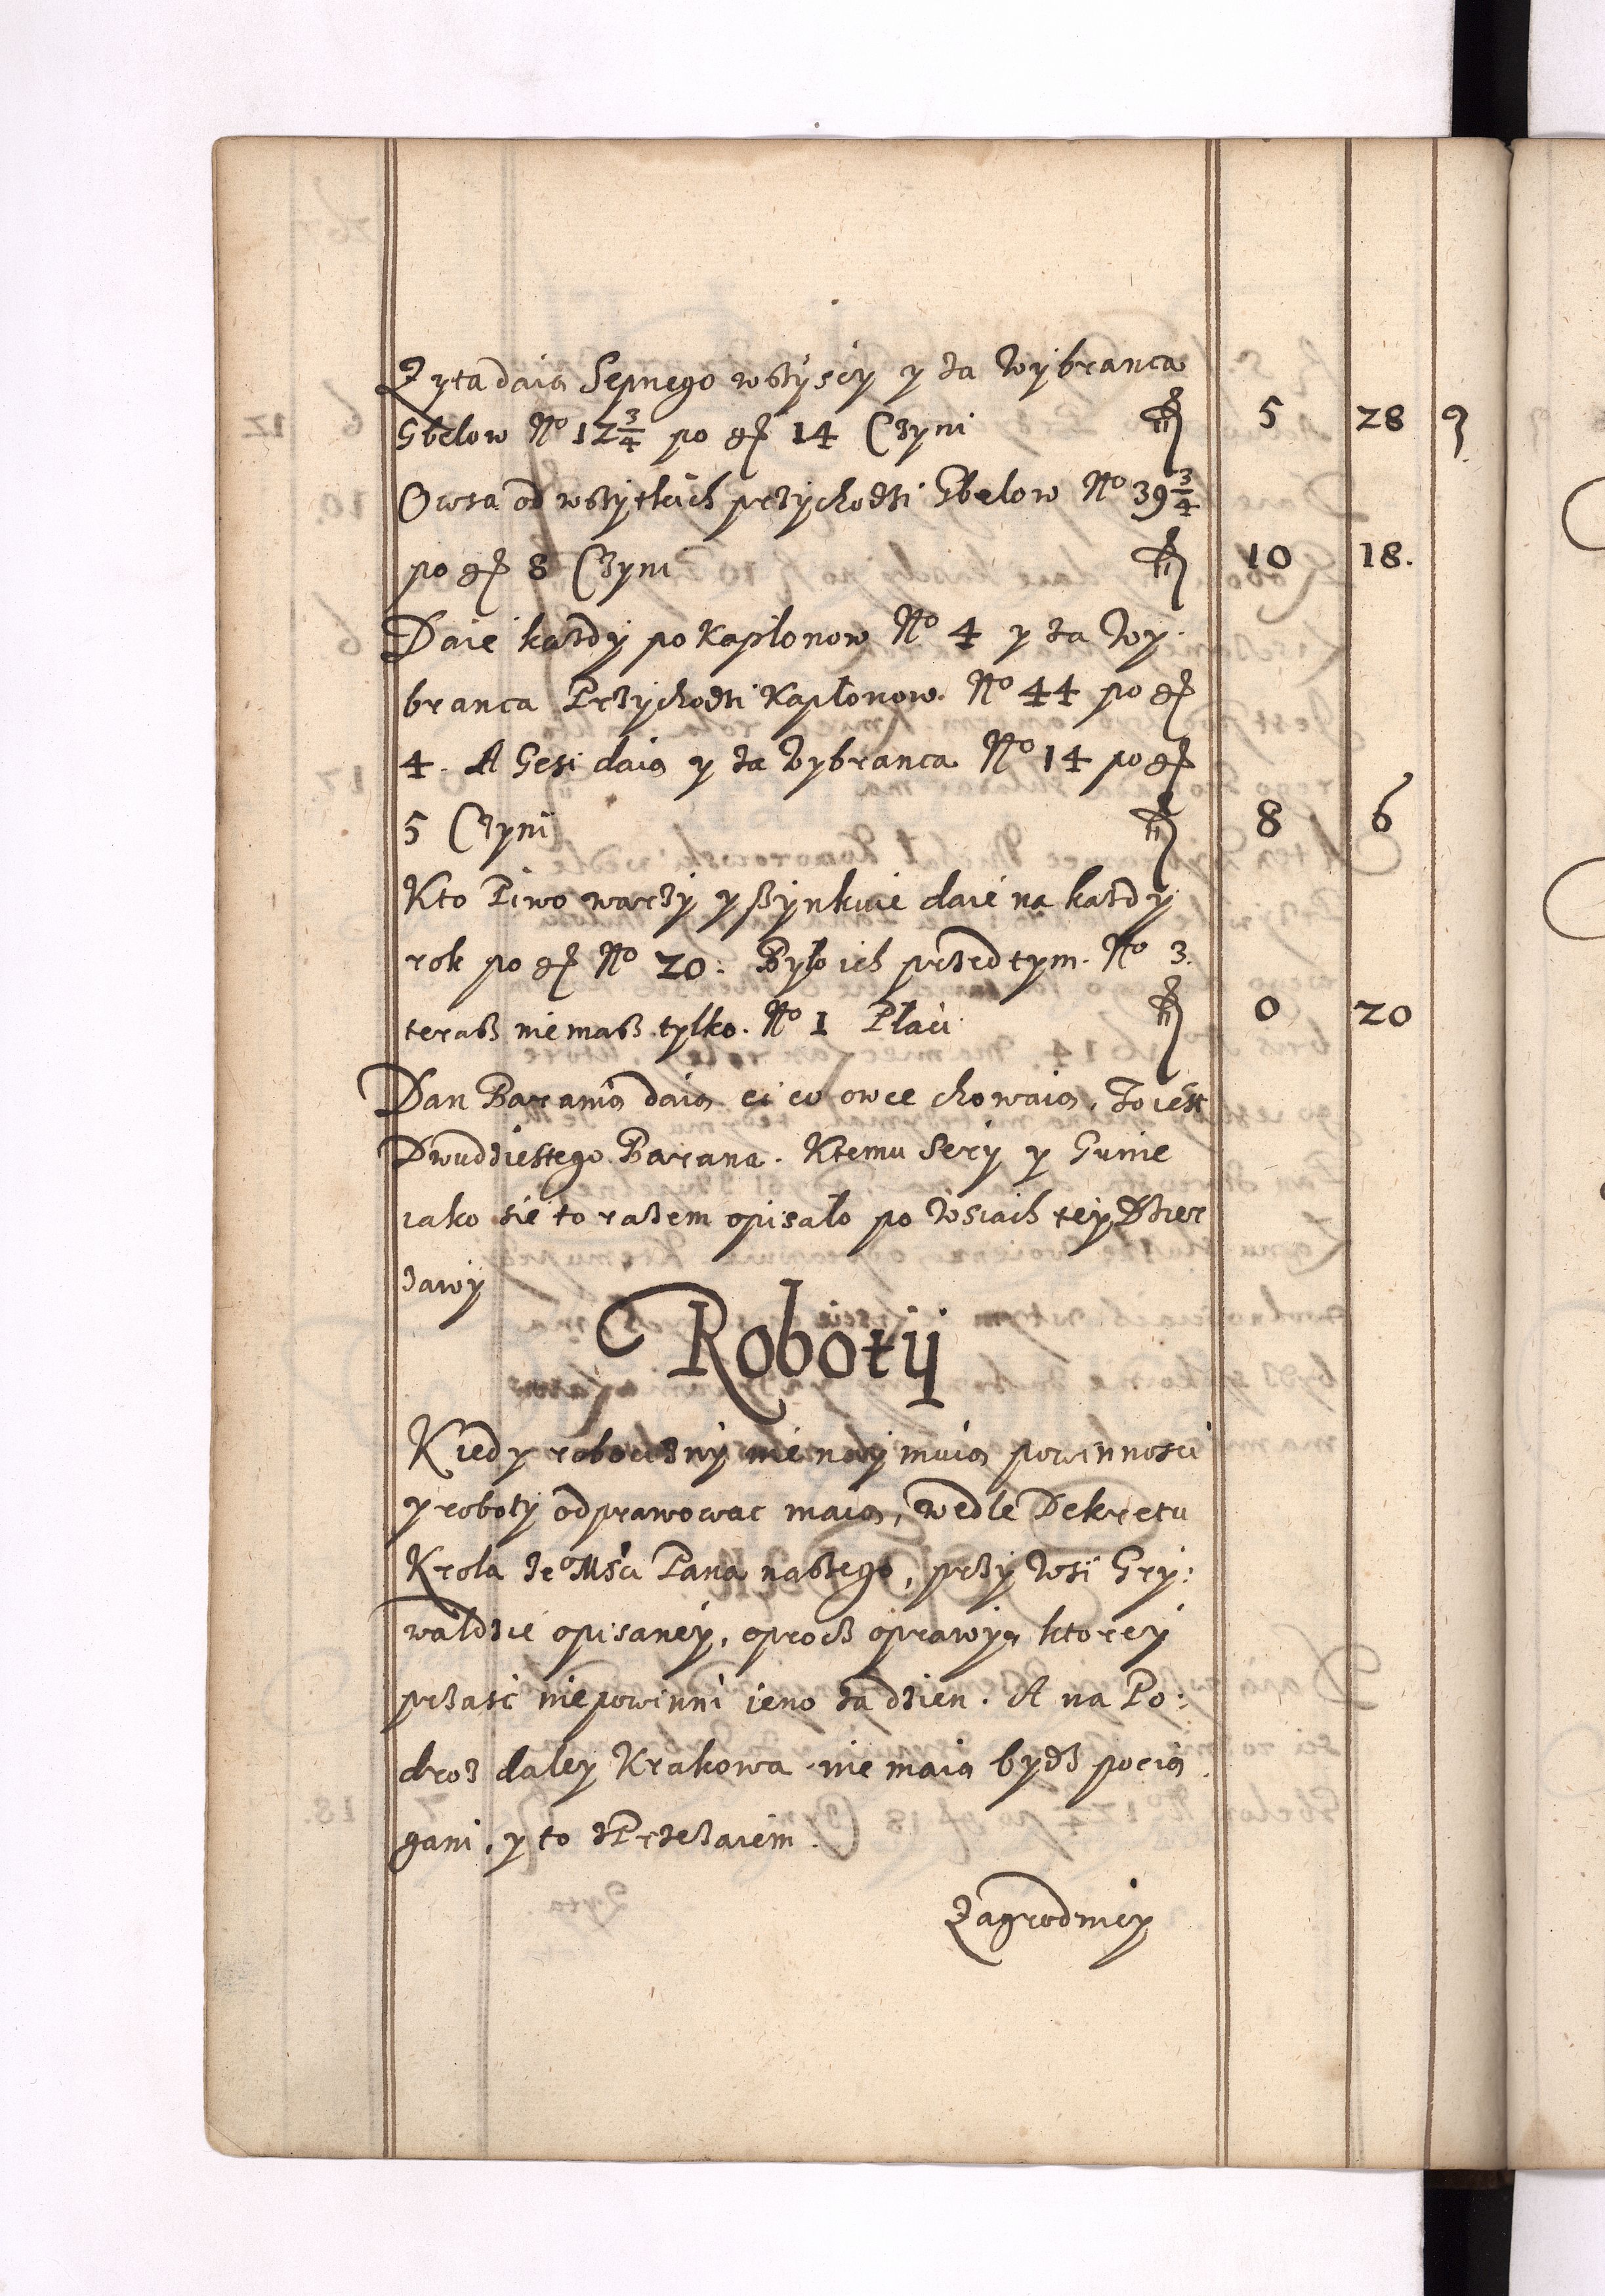 Zyta daią Sepnego wßyscy y za Wybranca
Gbelow No 12 3/4 po gß 14 Czyni fl 5 28 9
Owsa od wßytkich przychodzi Gbelow No 39 3/4
po gß 8 Czyni fl 10 18.
Daie kazdy po Kaplonow No 4 y za Wy-
branca Przychodzi Kaplonow No 44 po gß
4. A Gesi daią y za Wybranca No 14 po gß
5 Czyni fl 8 6
Kto Piwo warzy y ßynkuie daie na kazdy
rok po gß No 20: Bylo ich przedtym No 3.
teraß niemaß tylko No 1 Placi fl 0 20
Dan Barania daią ci co owce chowaią, To iest
Dwudziestego Barana. Ktemu Sery y Gunie
iako sie to razem opisało po Wsiach tey Dzier
zawy
Roboty
Kiedy robocizny nie naymuią powinnosci
y roboty odprawowac maią, wedle Dekretu
Krola Je⁰ Msci Pana naßego, przy Wsi Gry:
waldzie opisaney, oprocz oprawy, ktorey
przasc niepowinni ieno za dzien. A na Po:
droz daley Krakowa nie maią bydz pocią
gani, y to z Przezaiem.
Zagrodnicy